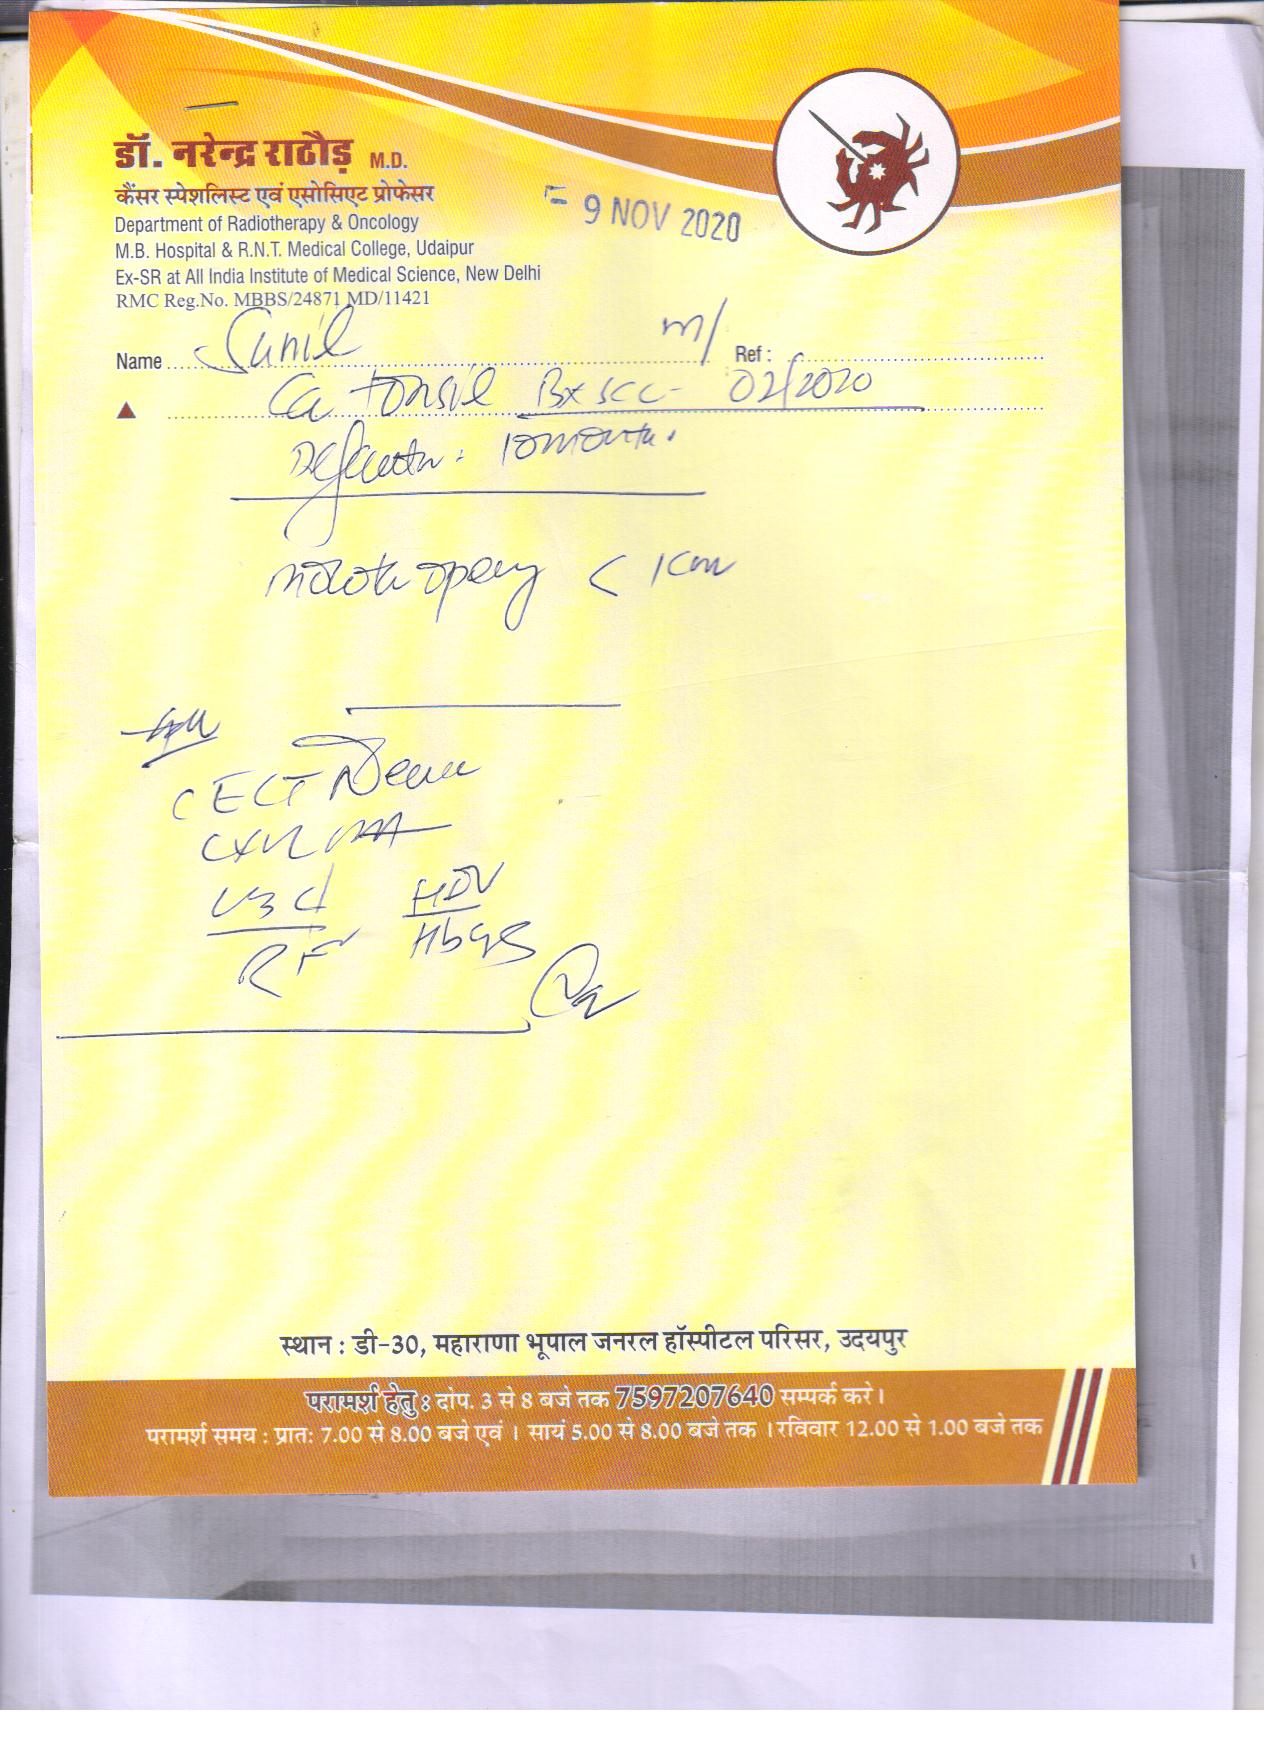 डॉ. नरेन्द्र राठौड़ M.D.
कैंसर स्पेशलिस्ट एवं एसोसिएट प्रोफेसर
Department of Radiotherapy & Oncology
M.B. Hospital & R.N.T. Medical College, Udaipur
Ex-SR at All India Institute of Medical Science, New Delhi
RMC Reg.No. MBBS/24871 MD/11421
9 NOV 2020
Name Sunil m/ Ref :
Ca tonsil Bx SCC - 02/2020
10 month.
mouth opening < 1cm
CECT
CXR PA
RF
स्थान : डी-30, महाराणा भूपाल जनरल हॉस्पीटल परिसर, उदयपुर
परामर्श हेतु : दोप. 3 से 8 बजे तक 7597207640 सम्पर्क करे ।
परामर्श समय : प्रातः 7.00 से 8.00 बजे एवं । सायं 5.00 से 8.00 बजे तक । रविवार 12.00 से 1.00 बजे तक